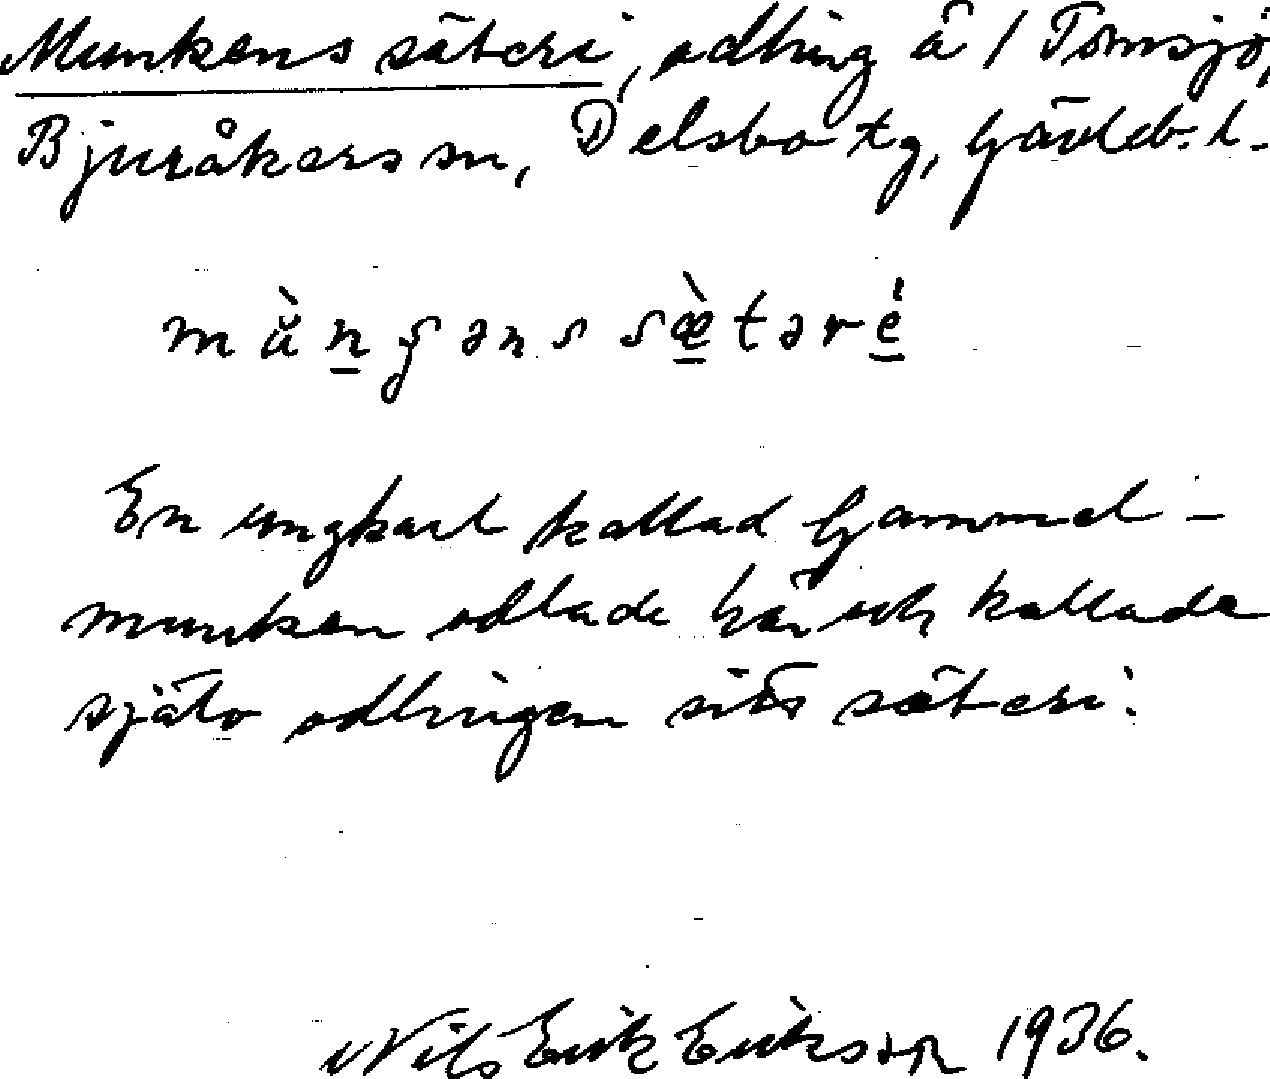 Munkens säteri, odling å 1 Tomsjö,
Bjuråkers sn, Delsbo tg, Gävleb. l.
En ungkarl kallad Gammel-
munken odlade här och kallade
själv odlingen sitt säteri.
Nils Erik Eriksson 1936.